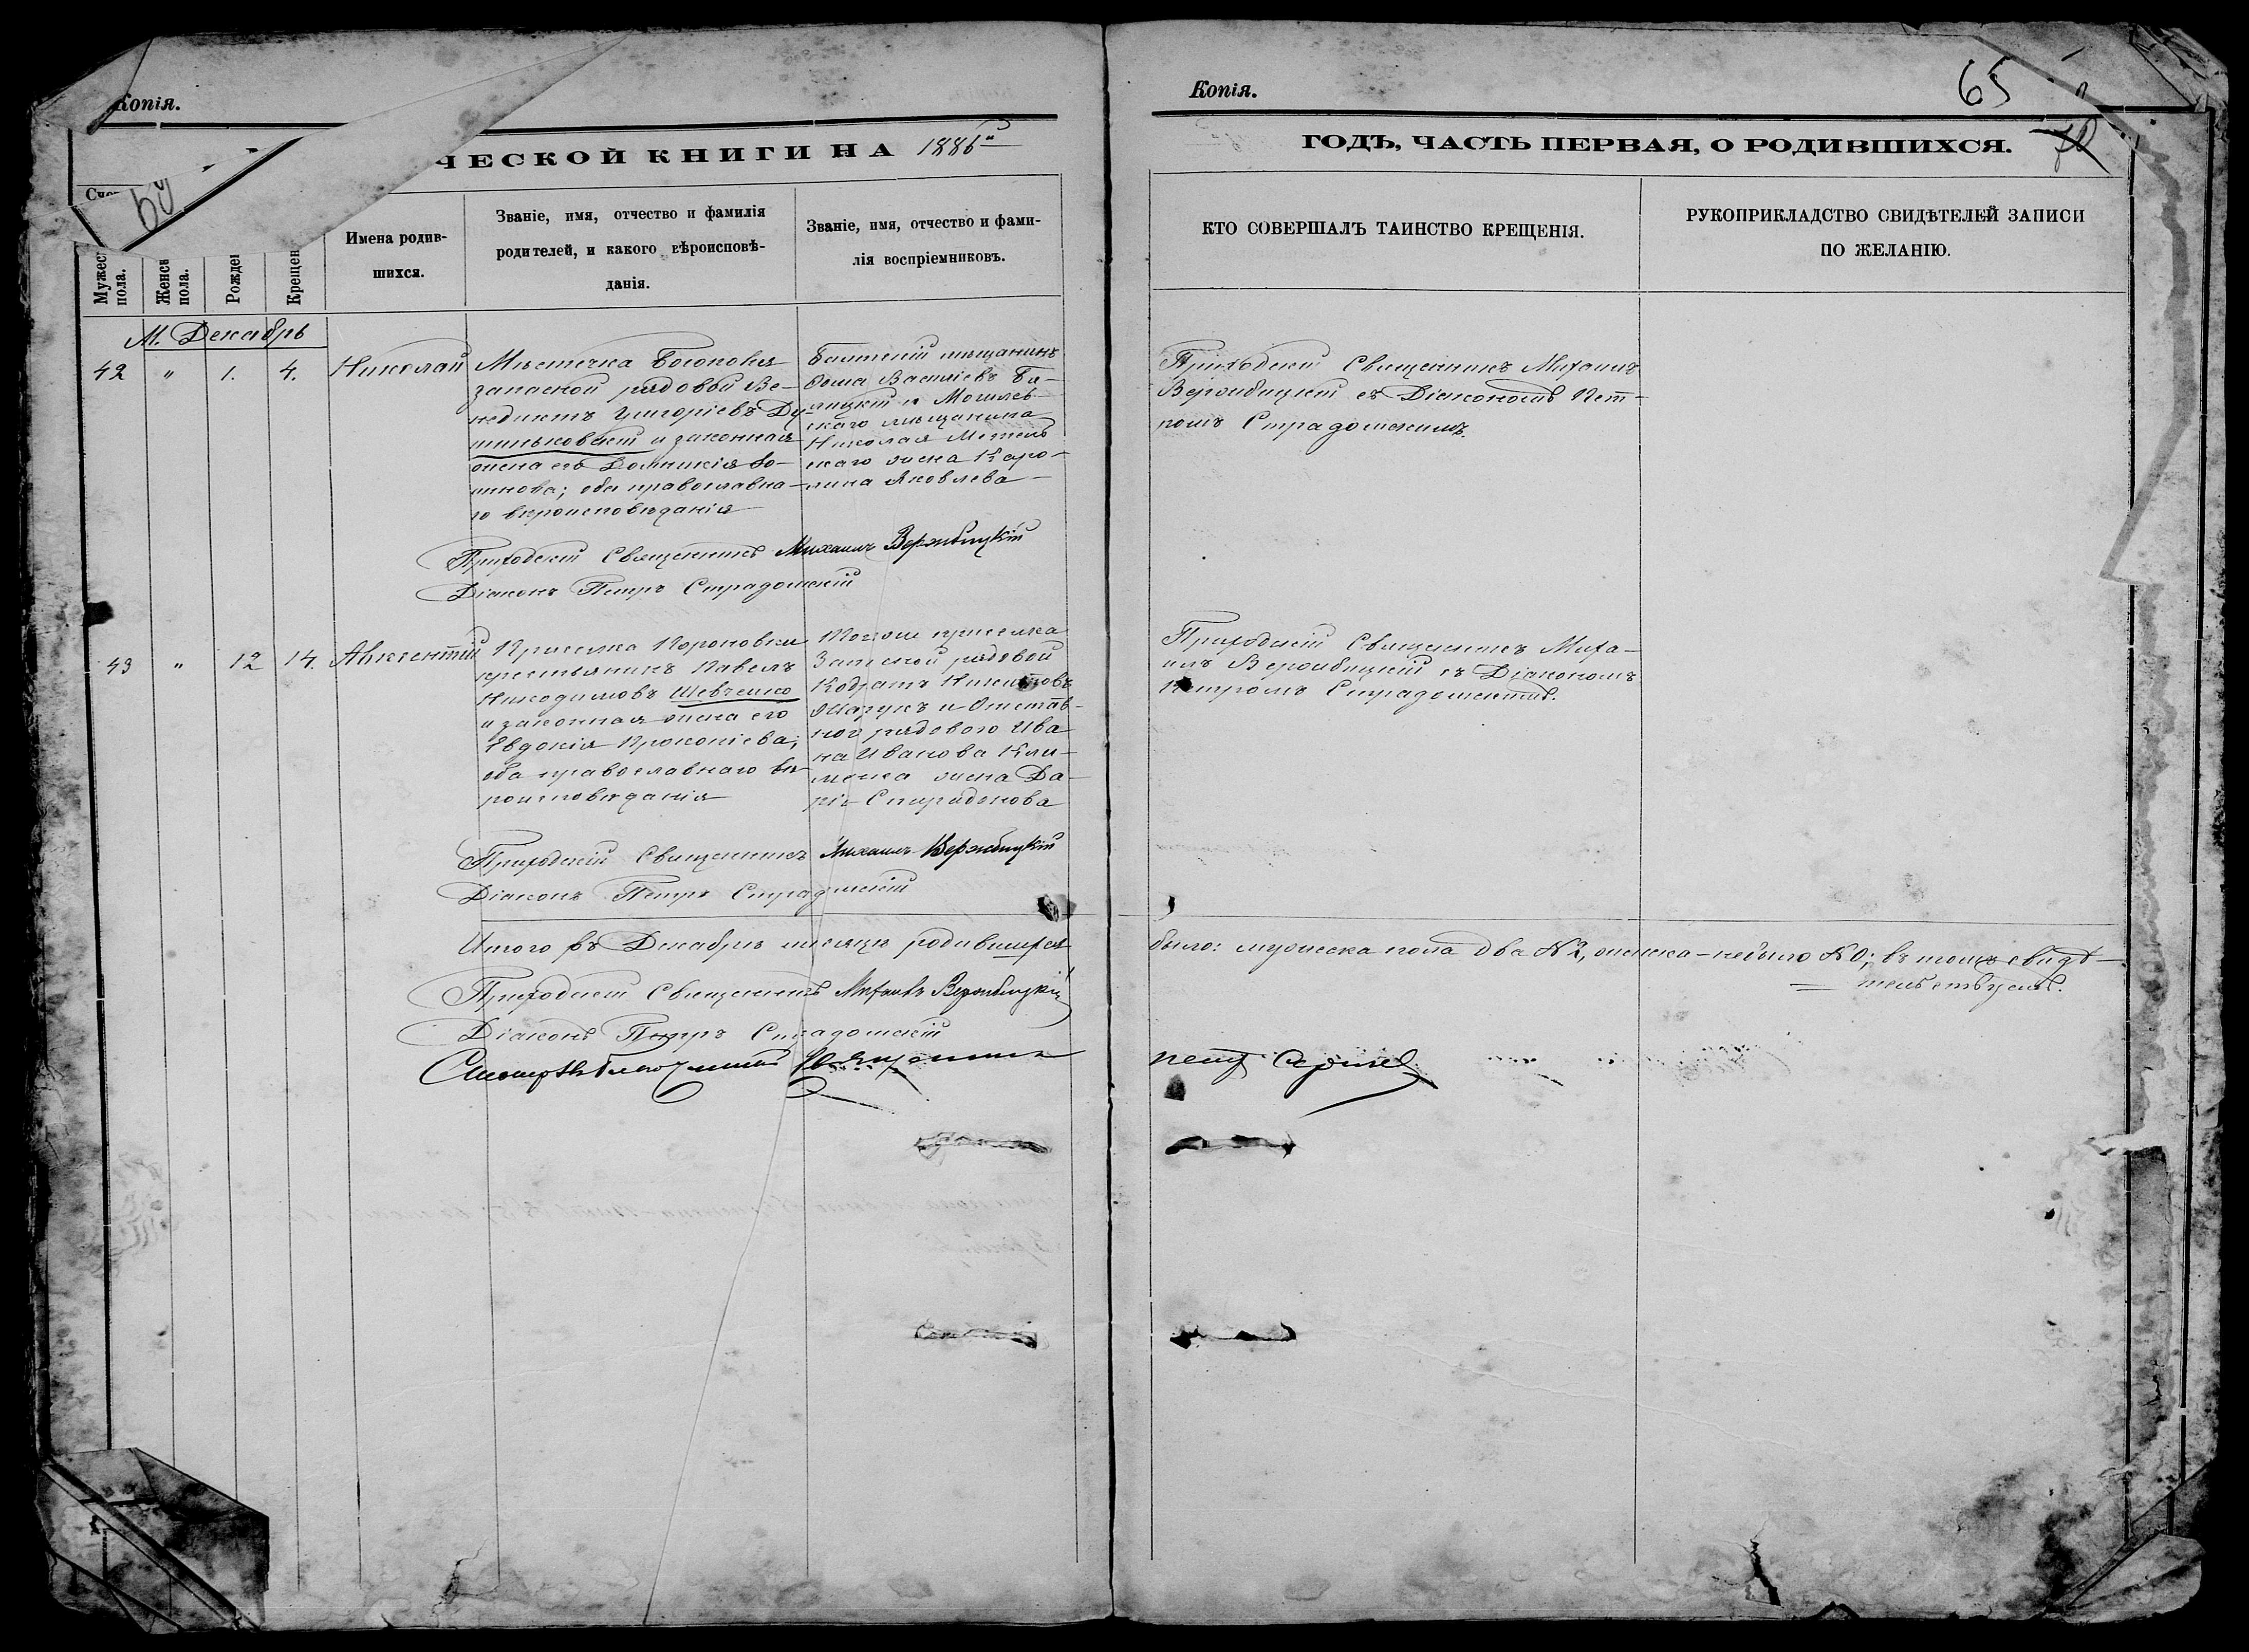 Копія.
ЧЕСКОЙ КНИГИ НА 1886й
Мужес
пола.
Женск
пола.
Рожден
Крещен
Имена родив-
шихся.
Званіе, имя, отчество и фамилія
родителей, и какого вѣроисповѣ-
данія.
Званіе, имя, отчество и фами-
лія воспріемниковъ.
М. Декабрь
42 " 1. 4. Николай
Мѣстечка
запасной рядовой Ве-
недиктъ Григоріевъ Ду-
и законная
жена его Домникія
; оба православна-
го вѣроисповѣданія
мѣщанинъ
Фома Василіевъ
и Могилев-
скаго мѣщанина
Николая
скаго жена Каро-
лина Яковлева
Приходскій Священникъ Михаилъ Вержбицкій
Діаконъ Петръ Страдомскій
43 " 12 14. Авксентій
Приселка Короновки
крестьянинъ Павелъ
Никодимовъ Шевченко
и законная жена его
Евдокія Прокопіева;
оба православнаго вѣ-
роисповѣданія
Тогоже приселка
Запасной рядовой
Кодратъ Никитовъ
и Отстав-
ного рядового Ива
на Иванова Кли-
менка жена Да-
рія Спиридонова
Приходскій Священникъ Михаилъ Вержбицкій
Діаконъ Петръ Страдомскій
Итого въ Декабрѣ мѣсяцѣ родившихся
Приходскій Священникъ Михаилъ Вержбицкій
Діаконъ Петръ Страдомскій
Копія.
65
70
ГОДЪ, ЧАСТЬ ПЕРВАЯ, О РОДИВШИХСЯ.
КТО СОВЕРШАЛЪ ТАИНСТВО КРЕЩЕНІЯ.
РУКОПРИКЛАДСТВО СВИДѢТЕЛЕЙ ЗАПИСИ
ПО ЖЕЛАНІЮ.
Приходскій Священникъ Михаилъ
Вержбицкій съ Діакономъ Пет-
ромъ Страдомскимъ.
Приходскій Священникъ Миха-
илъ Вержбицкій съ Діакономъ
Петромъ Страдомскимъ.
было: мужеска пола два №2, женска - небыло №0; въ томъ свидѣ-
тельствуемъ.